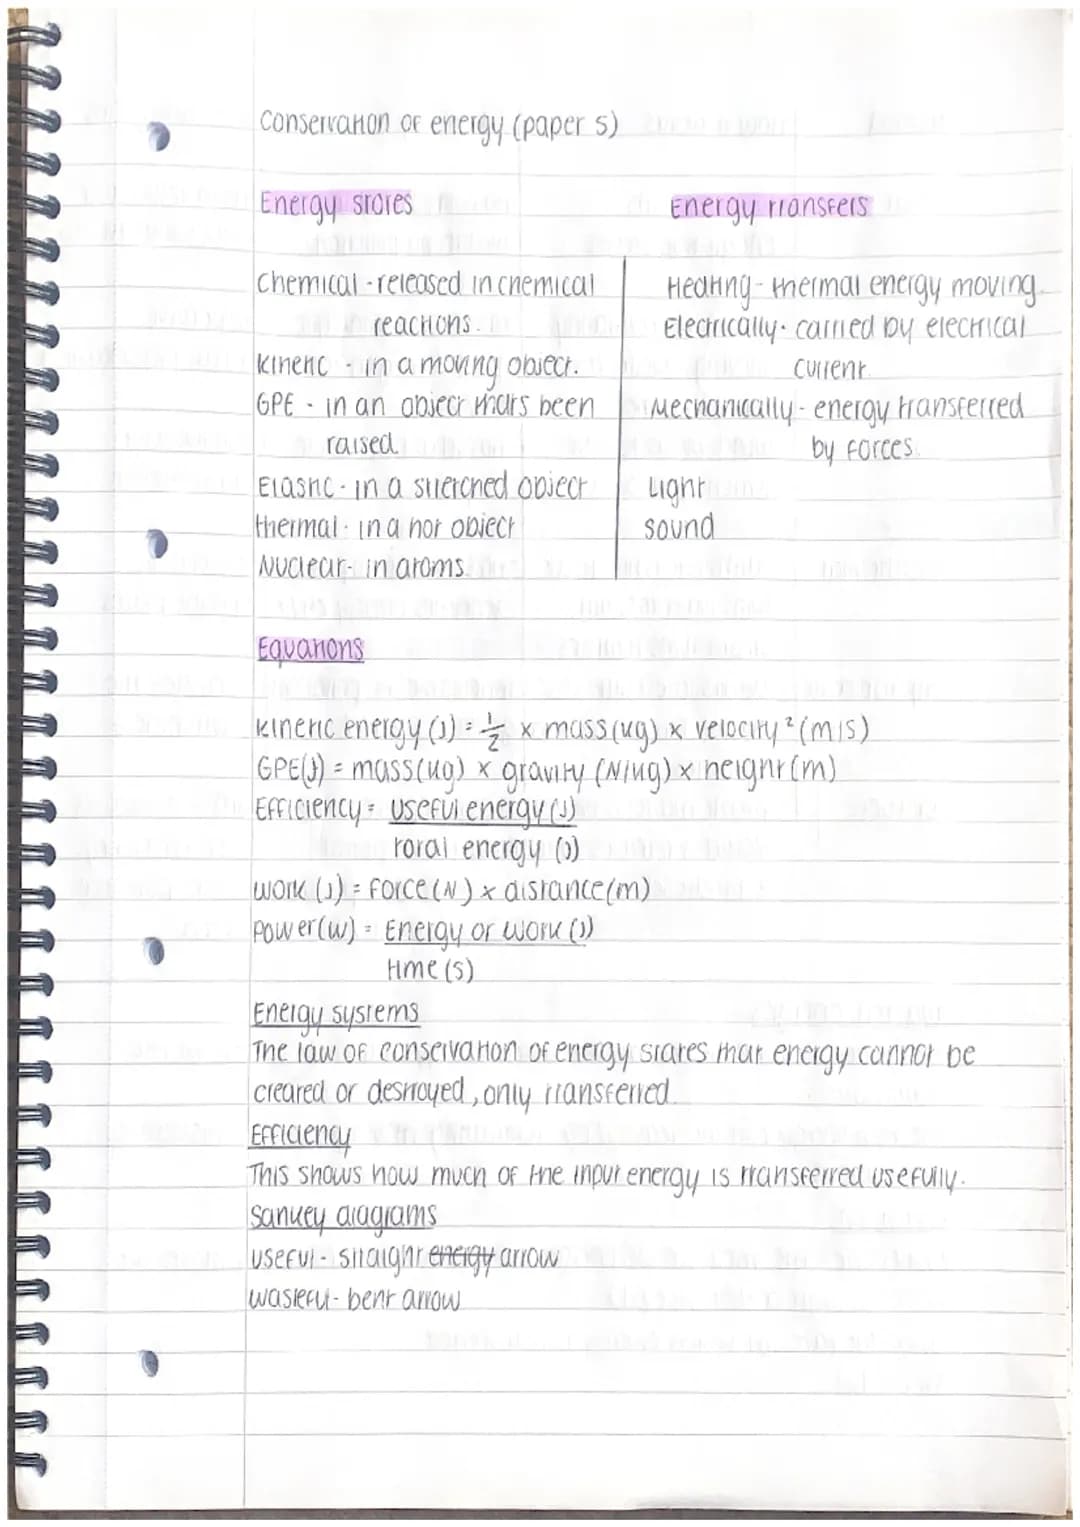 Conservation of energy (paper 5)
Energy stores
Energy transfers
Chemical - released in chemical
reactions.
kinetic - in a moving object.
GPE - in an object thats been
raised.
Elastic - in a stretched object
thermal - in a hot object
Nuclear - in atoms.
Heating - thermal energy moving.
Electrically - carried by electrical
current.
Mechanically - energy transferred
by forces.
Light
sound
Equations
kinetic energy (J) = 1/2 x mass (kg) x velocity² (m/s)
GPE (J) = mass (kg) x gravity (N/kg) x height (m)
Efficiency = useful energy (J)
total energy (J)
work (J) = force (N) x distance (m)
Power (W) = Energy or work (J)
time (s)
Energy systems
The law of conservation of energy states that energy cannot be
created or destroyed, only transferred.
Efficiency
This shows how much of the input energy is transferred usefully.
Sankey diagrams
useful - straight energy arrow
wasteful - bent arrow